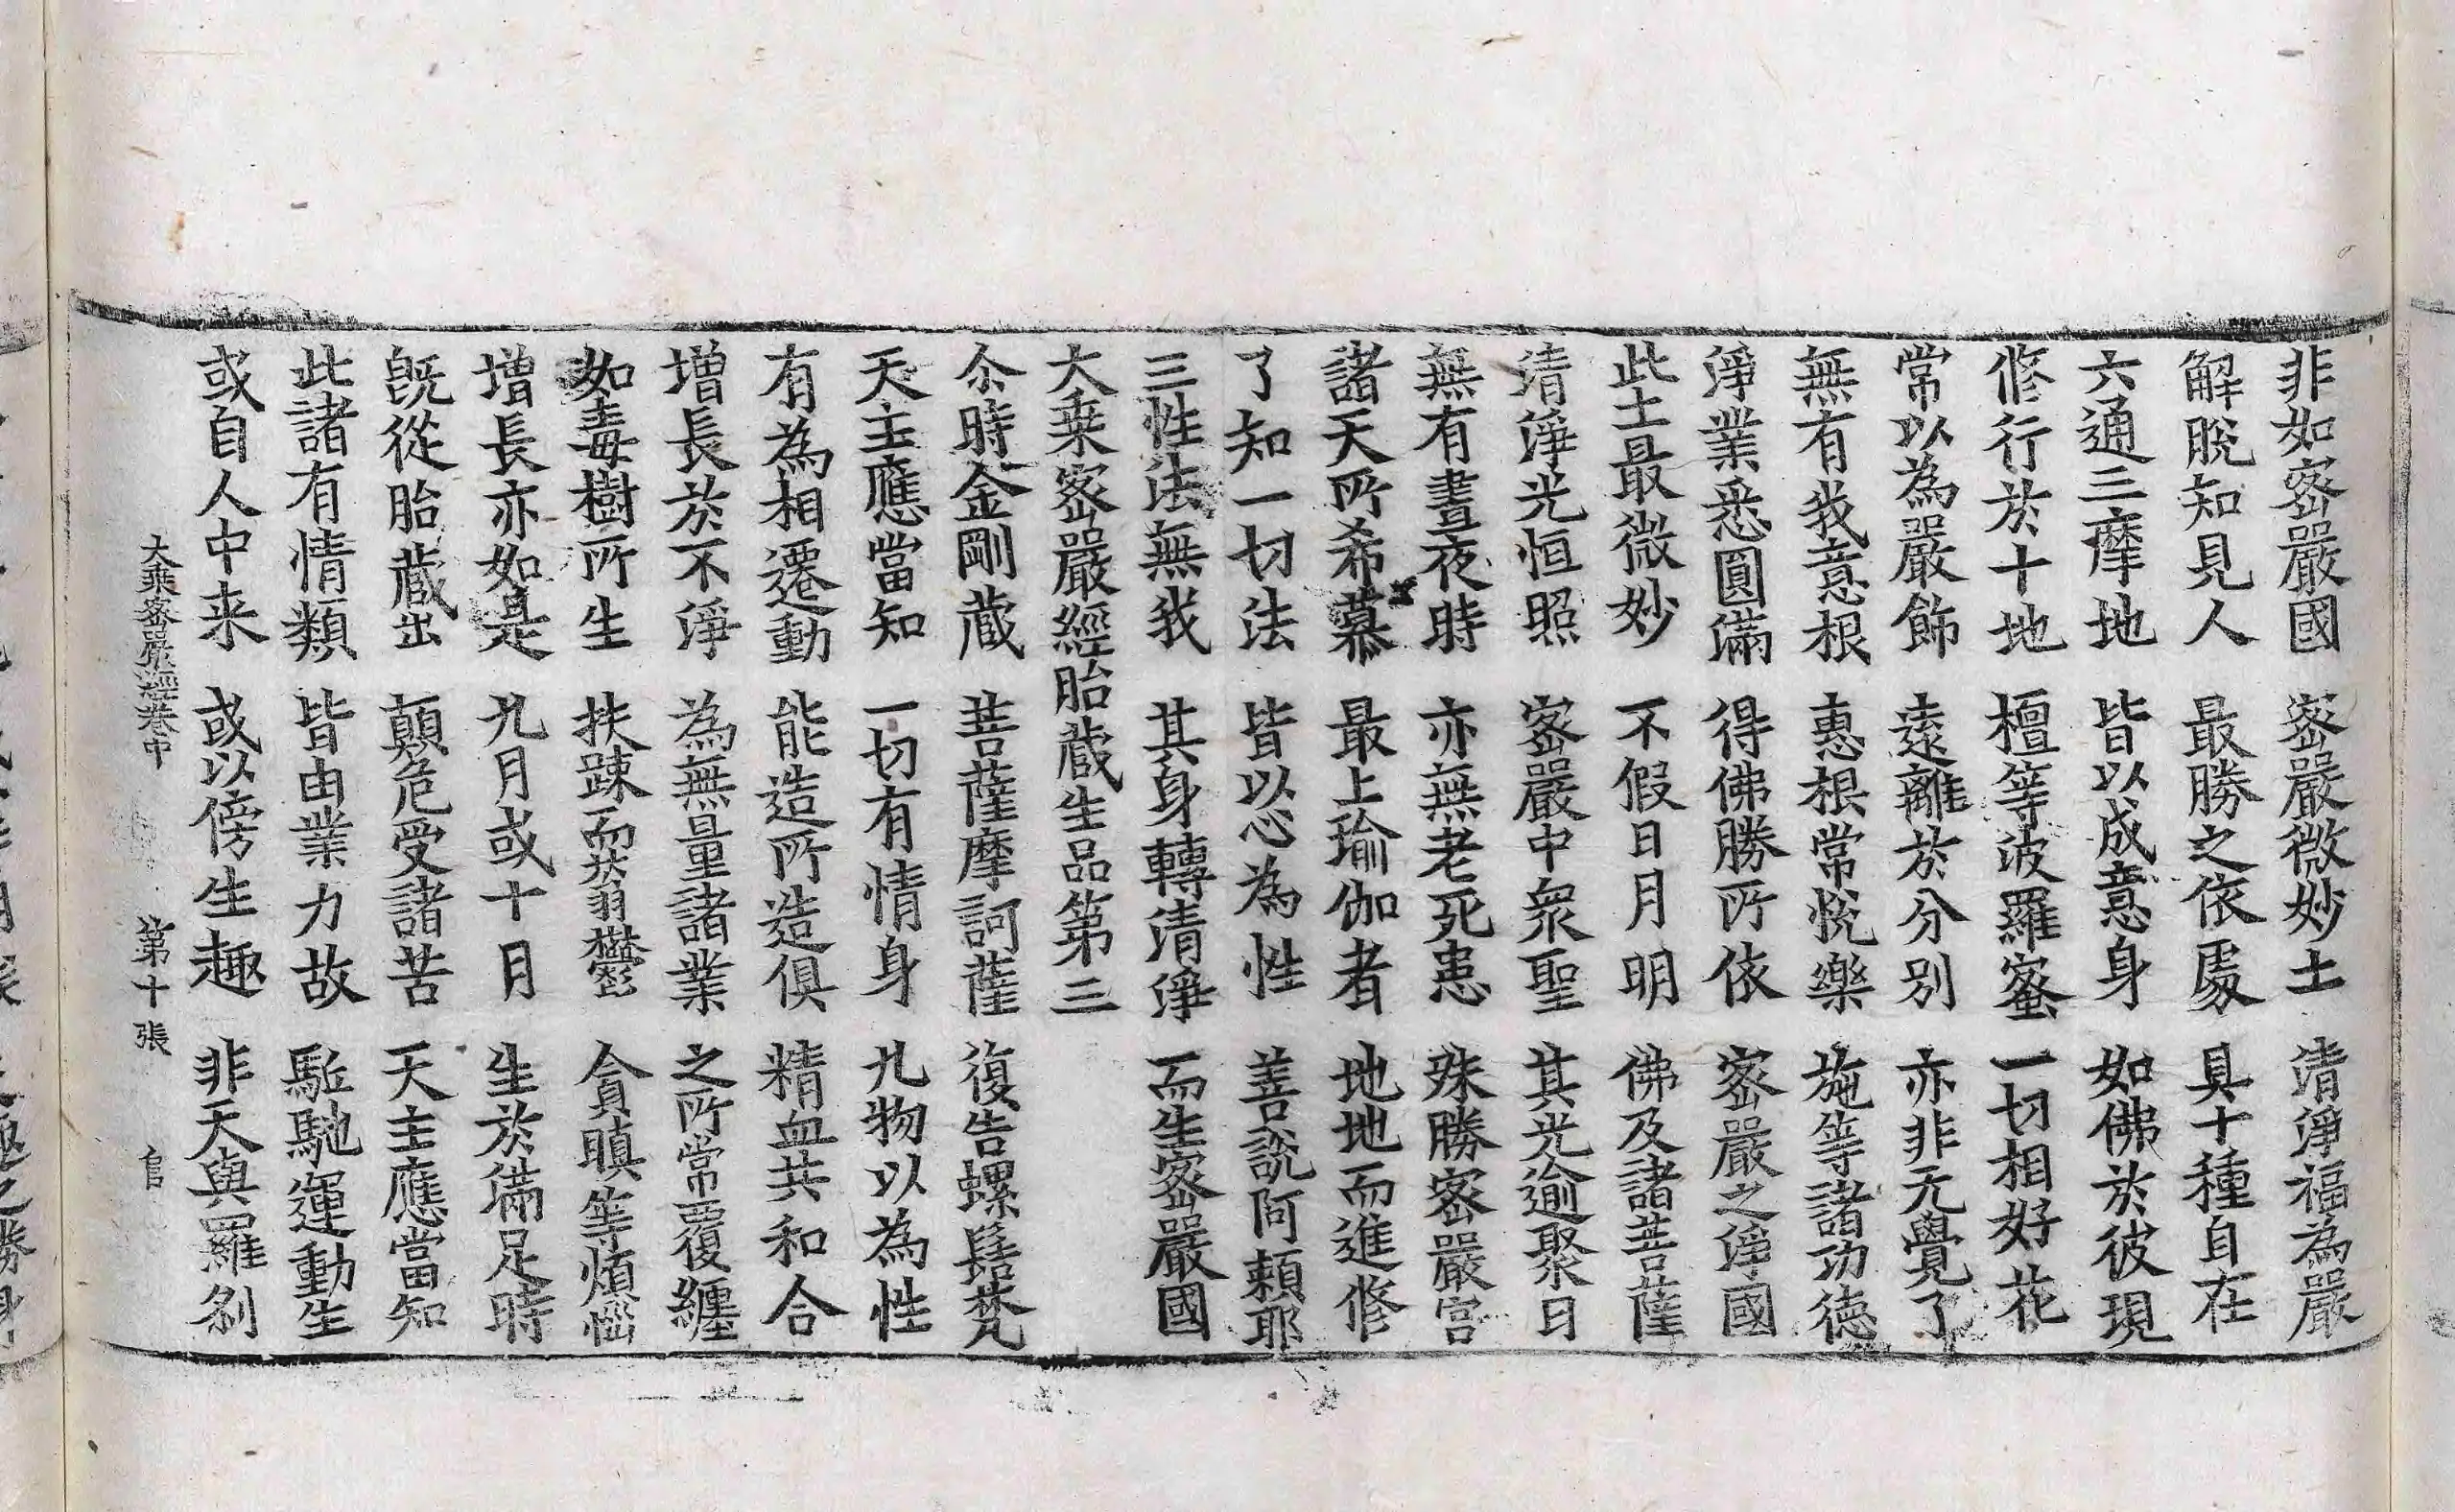 非如密嚴國 密嚴微妙土 清淨福為嚴
解脫知見人 最勝之依處 具十種自在
六通三摩地 皆以成意身 如佛於彼現
修行於十地 檀等波羅蜜 一切相好花
常以為嚴飾 遠離於分別 亦非无覺了
無有我意根 惠根常悅樂 施等諸功德
淨業悉圓滿 得佛勝所依 密嚴之淨國
此土最微妙 不假日月明 佛及諸菩薩
清淨光恒照 密嚴中衆聖 其光逾聚日
無有晝夜時 亦無老死患 殊勝密嚴宫
諸天所希慕 最上瑜伽者 地地而進修
了知一切法 皆以心為性 善說阿頼耶
三性法無我 其身轉清淨 而生密嚴國
大乗密嚴經胎藏生品第三
尒時金剛藏 菩薩摩訶薩 復告螺髻梵
天主應當知 一切有情身 九物以為性
有為相遷動 能造所造俱 精血共和合
增長於不淨 為無量諸業 之所常覆纏
如毒樹所生 扶踈而蓊鬱 貪瞋等煩惱
增長亦如是 九月或十月 生於滿足時
旣從胎藏出 顛危受諸苦 天主應當知
此諸有情類 皆由業力故 驅馳運動生
或自人中来 或以傍生趣 非天與羅刹
大乗密嚴經卷中 第十張